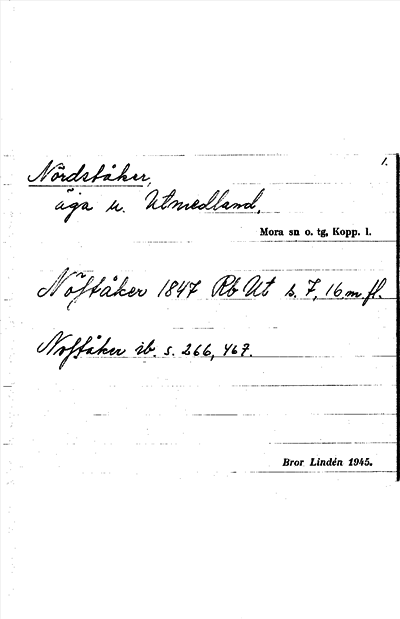 1.
Nördståker,
äga u. Utmedland,
Mora sn o. tg, Kopp. l.
Nöfståker 1847 Rb Ut s. 7, 16 m. fl.
Nofståker ib. s. 266, 467.
Bror Lindén 1945.